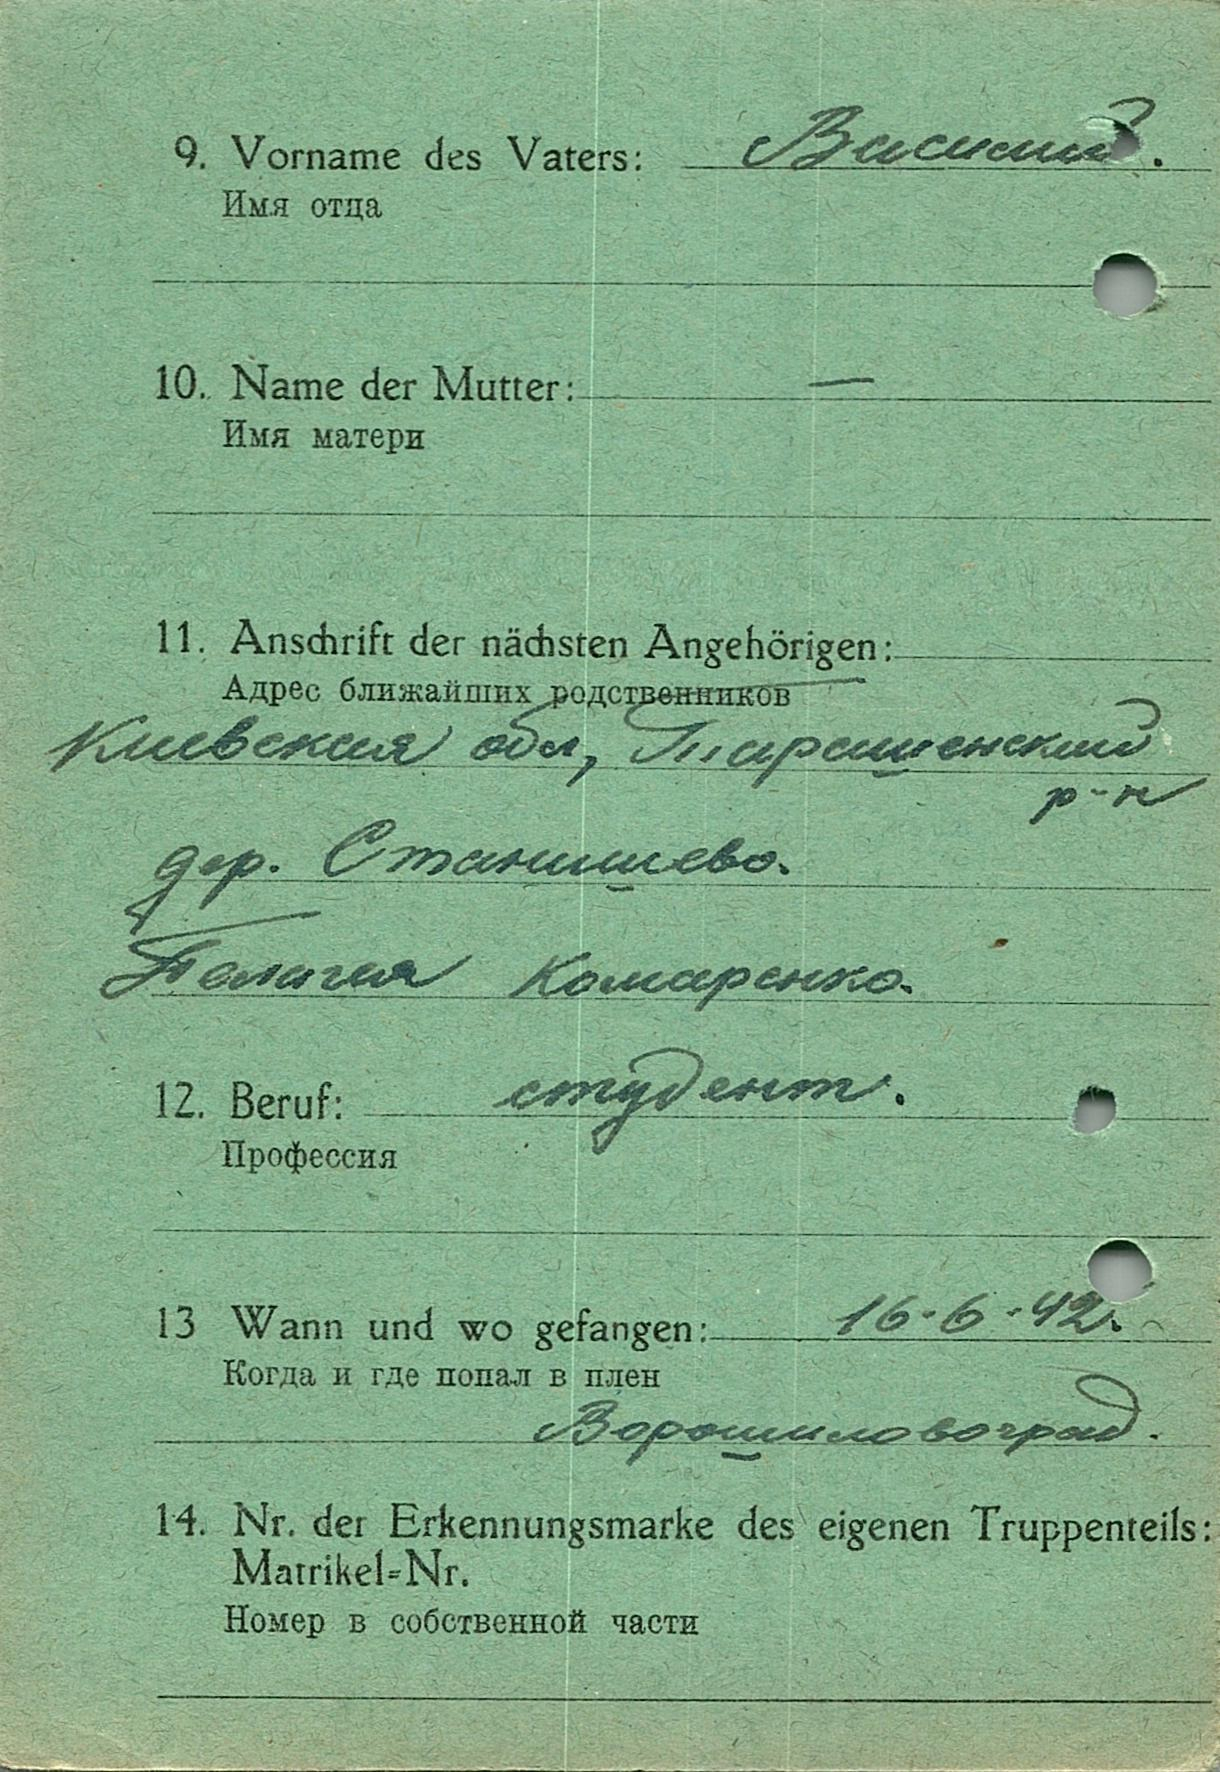 9. Vorname des Vaters: Василий.
Имя отца
10. Name der Mutter: —
Имя матери
11. Anschrift der nächsten Angehörigen:
Адрес ближайших родственников
Киевская обл, Таращенский
р-н
дер. Станишево.
Пелагея Комаренко.
12. Beruf: студент.
Профессия
13 Wann und wo gefangen: 16-6-42.
Когда и где попал в плен
Ворошиловоград.
14. Nr. der Erkennungsmarke des eigenen Truppenteils:
Matrikel=Nr.
Номер в собственной части